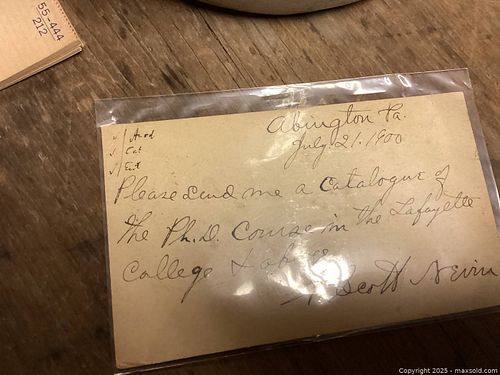 55-444
212
Abington Pa.
July 21. 1900
Cat
Please send me a Catalogue of
the Ph.D. Course in the Lafayette
College &
Scott Nevin
Copyright 2025 - maxsold.com